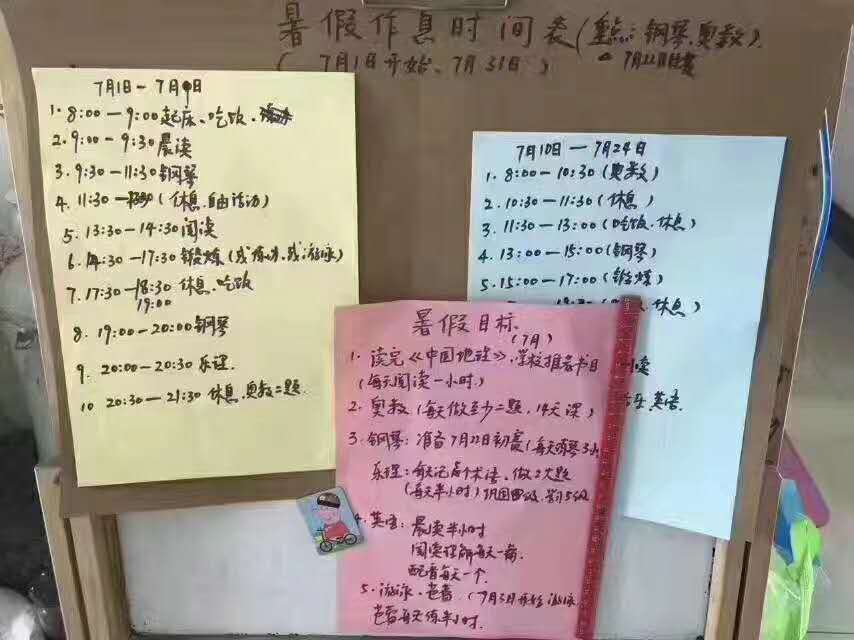 暑假作息时间表(重点:钢琴.奥数)
(7月1日开始、7月31日)
7月22日比赛
7月1日一7月9日
1. 8:00一9:00起床、吃饭.
2. 9:00-9:30晨读
3. 9:30-11:30钢琴
4. 11:30-(休息.自由活动)
5. 13:30-14:30阅读
6. 14:30-17:30锻炼(或,或游泳)
7. 17:30-18:30休息.吃饭
19:00
8. 19:00-20:00钢琴
9. 20:00-20:30乐理.
10 20:30-21:30休息.奥数二题.
7月10日一7月24日
1. 8:00-10:30(奥数)
2. 10:30-11:30(休息)
3. 11:30-13:00(吃饭.休息)
4. 13:00-15:00(钢琴)
5. 15:00-17:00(锻炼)
.休息)
读
英语.
暑假目标.
(7月)
1. 读完《中国地理》,学校推荐书目
(每天阅读一小时.)
2. 奥数(每天做至少二题,14天课)
3. 钢琴:准备7月22日初赛(每天练琴3小
乐理:每天记几个术语、做2大题
(每天半小时)巩固四级.
4. 英语:晨读半小时
阅读理解每天一篇
配音每天一个.
5. 游泳、芭蕾.(7月3日开始游泳
芭蕾每天练半小时.